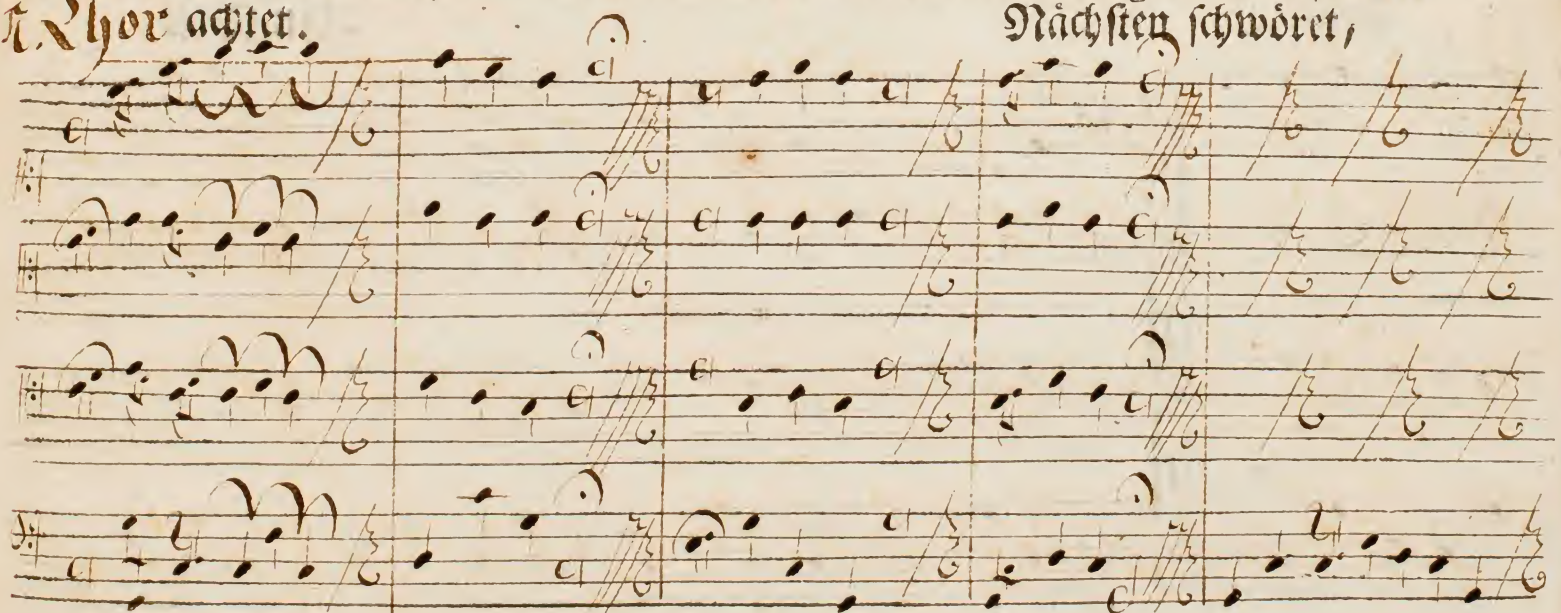 Chor achtet. Nächsten schwöret,